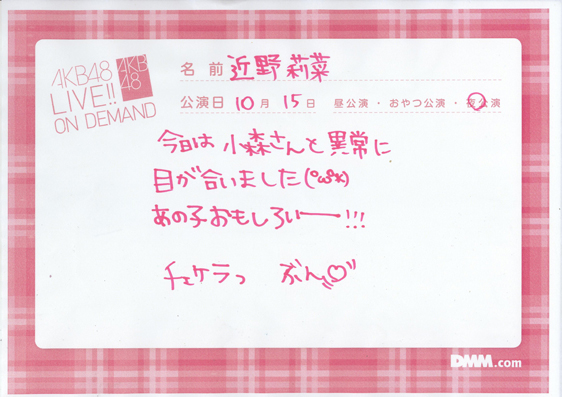 AKB48
LIVE!!
ON DEMAND
AKB
48
名 前 近野 莉菜
公演日 10月 15日 昼公演・おやつ公演・夜公演
今日は 小森さんと異常に
目が合いました(°ω°*)
あの子おもしろいー!!!
チェケラっ ぶん♡
DMM.com